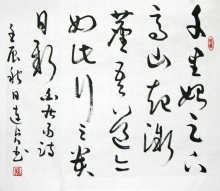 千里始足下
高山起微
塵吾道亦
如此行之貴
日新 居易詩
壬辰秋日達書